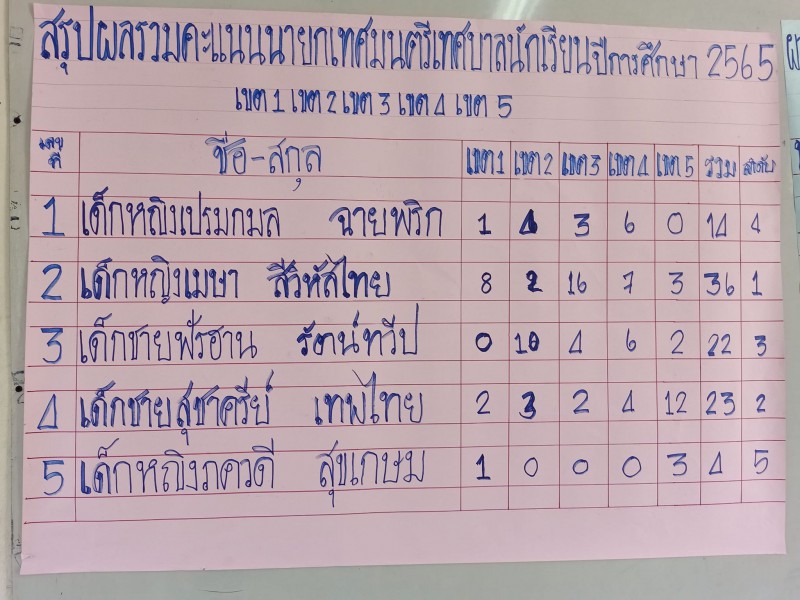 สรุปผลรวมคะแนนนายกเทศมนตรีเทศบาลนักเรียนปีการศึกษา 2565
เขต 1 เขต 2 เขต 3 เขต 4 เขต 5
เลขที่ ชื่อ-สกุล เขต 1 เขต 2 เขต 3 เขต 4 เขต 5 รวม ลำดับ
1 เด็กหญิงเปรมกมล ฉายพริก 1 4 3 6 0 14 4
2 เด็กหญิงเมษา สีวิหัสไทย 8 2 16 7 3 36 1
3 เด็กชายฟัรฮาน รัตน์ทวีป 0 10 4 6 2 22 3
4 เด็กชายสุชาครีย์ เทพไทย 2 3 2 4 12 23 2
5 เด็กหญิงภควดี สุขเกษม 1 0 0 0 3 4 5